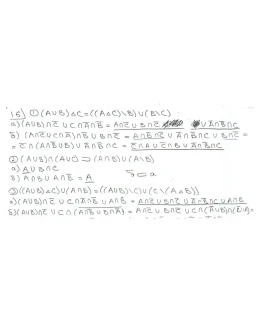 15) ① (A∪B)△C=((A△C)\B)∪(B\C)
а) (A∪B)∩C̅ ∪ C∩A̅∩B̅ = A∩C̅ ∪ B∩C̅ ∪ A̅∩B̅∩C
б) (A∩C̅ ∪ C∩A̅)∩B̅ ∪ B∩C̅ = A∩B̅∩C̅ ∪ A̅∩B̅∩C ∪ B∩C̅ =
= C̅∩(A∩B̅∪B) ∪ A̅∩B̅∩C = C̅∩A ∪ C̅∩B ∪ A̅∩B̅∩C
② (A∪B)∩(A∪C̅) ⊃ (A∩B)∪(A\B)
а) A∪B∩C̅
б) A∩B∪A∩B̅ = A
б⊂а
③ ((A∪B)△C)∪(A∩B)=((A∪B)\C)∪(C\(A△B))
а) (A∪B)∩C̅ ∪ C∩A̅∩B̅ ∪ A∩B = A∩C̅ ∪ B∩C̅ ∪ A̅∩B̅∩C ∪ A∩B
б) (A∪B)∩C̅ ∪ C∩(A∩B̅ ∪ B∩A̅) = A∩C̅ ∪ B∩C̅ ∪ C∩(A̅∪B)∩(B̅∪A)=